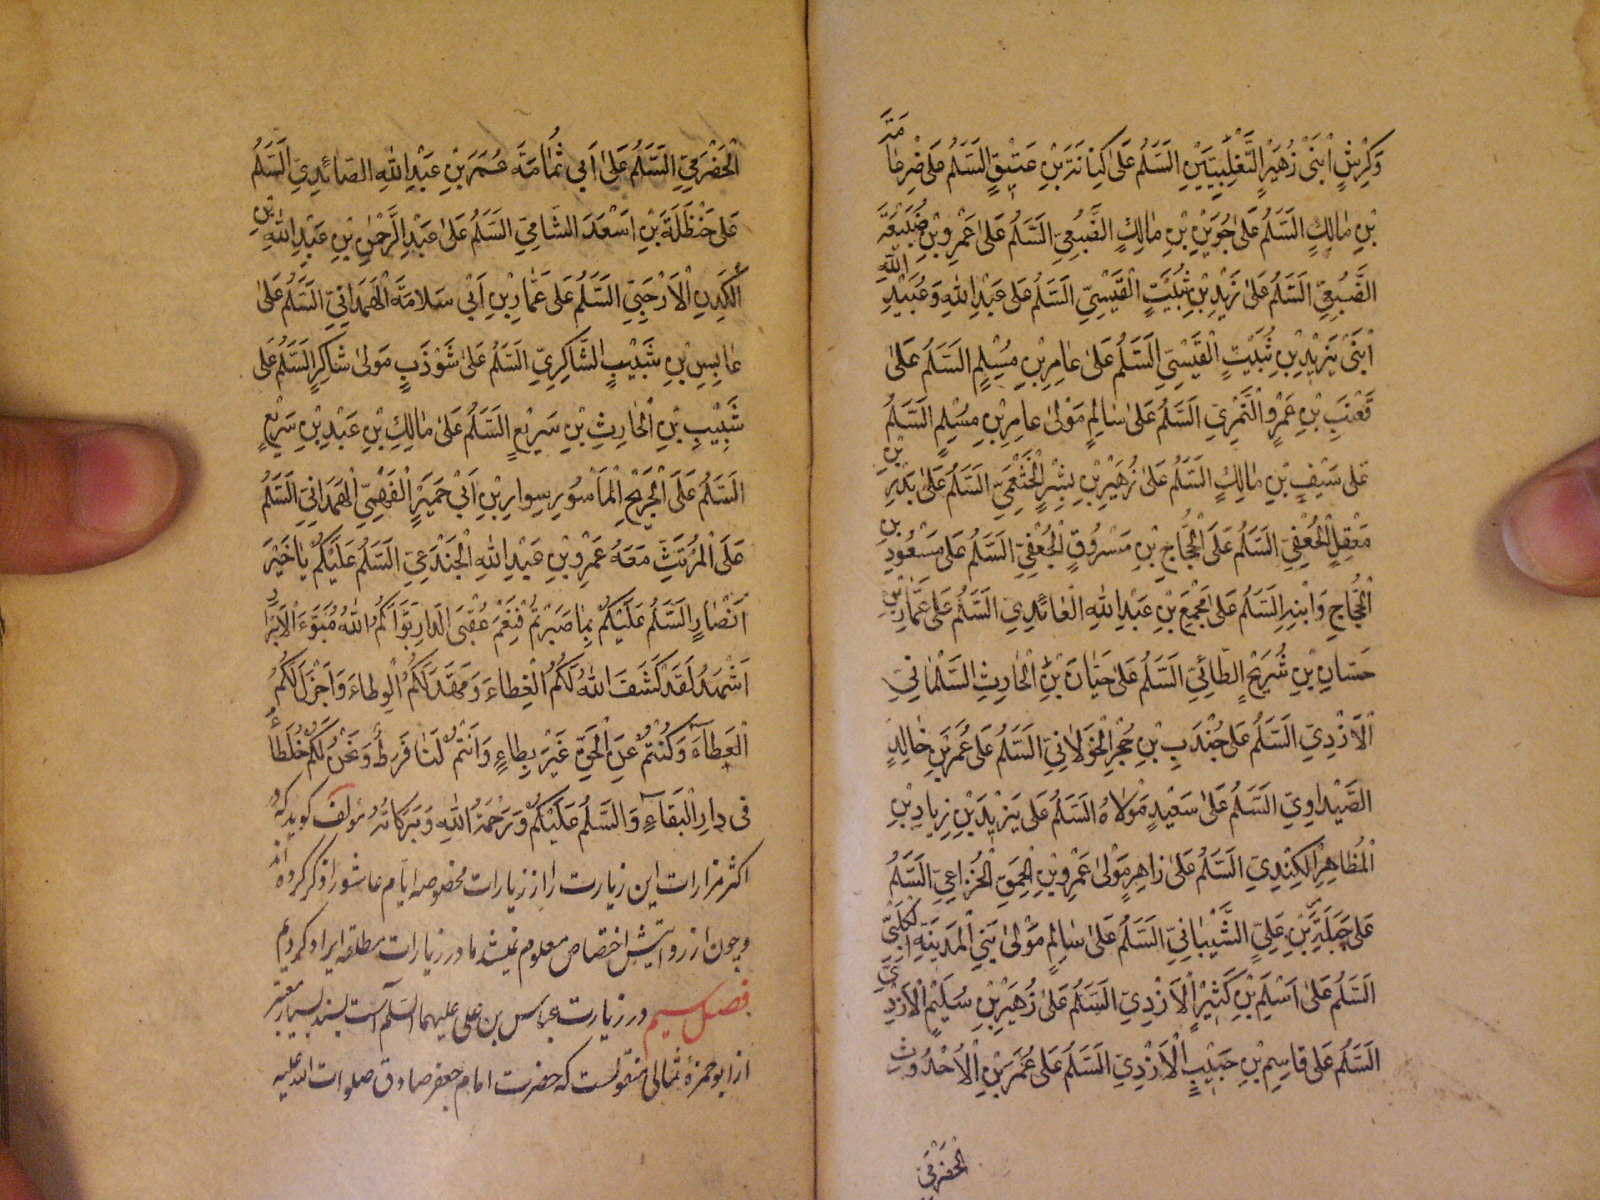 وَكِرْشٍ ابْنَىْ زُهَيْرٍ التَّغْلِبِيَّيْنِ السَّلَمُ عَلىٰ كِنَانَةَ بْنِ عَتيقٍ السَّلَمُ عَلىٰ ضِرغامَةَ
بْنِ مٰالِكٍ السَّلَمُ عَلىٰ جُوَيْنِ بْنِ مٰالِكٍ الضَّبُعِيِّ السَّلَمُ عَلىٰ عَمْرِو بْنِ ضُبَيْعَةَ
الضَّبُعِيِّ السَّلَمُ عَلىٰ زَيْدِ بْنِ ثُبَيْتٍ الْقَيْسِيِّ السَّلَمُ عَلىٰ عَبْدِ اللهِ وَعُبَيْدِ اللهِ
ابْنَىْ يَزيدِ بْنِ ثُبَيْتٍ الْقَيْسِيِّ السَّلَمُ عَلىٰ عٰامِرِ بْنِ مُسْلِمٍ السَّلَمُ عَلىٰ
قَعْنَبِ بْنِ عَمْرٍو النَّمِرْيِ السَّلَمُ عَلىٰ سٰالِمٍ مَوْلىٰ عٰامِرِ بْنِ مُسْلِمٍ السَّلَمُ
عَلىٰ سَيْفِ بْنِ مٰالِكٍ السَّلَمُ عَلىٰ زُهَيْرِ بْنِ بِشْرٍ الْخَثْعَمِيِّ السَّلَمُ عَلىٰ بَدْرِ بْنِ
مَعْقِلٍ الْجُعْفِيِّ السَّلَمُ عَلَى الْحَجَّاجِ بْنِ مَسْرُوقٍ الْجُعْفِيِّ السَّلَمُ عَلىٰ مَسْعُودِ بْنِ
الْحَجَّاجِ وَابْنِهِ السَّلَمُ عَلىٰ مَجْمَعِ بْنِ عَبْدِ اللهِ الْعٰائِدِيِ السَّلَمُ عَلىٰ عَمَّارِ بْنِ
حَسّانِ بْنِ شُرَيْحٍ الطّائِيِّ السَّلَمُ عَلىٰ حَيّانَ بْنِ الْحٰارِثِ السَّلْمٰانِيِّ
الْاَزْدِيِّ السَّلَمُ عَلىٰ جُنْدَبِ بْنِ حُجْرٍ الْخَوْلٰانِيِّ السَّلَمُ عَلىٰ عُمَرَ بْنِ خٰالِدٍ
الصَّيْداوِيِّ السَّلَمُ عَلىٰ سَعيْدٍ مَوْلٰاهُ السَّلَمُ عَلىٰ يَزيْدَ بْنِ زِيادِ بْنِ
الْمُظٰاهِرِ الْكِنْدِيِّ السَّلَمُ عَلىٰ زٰاهِرٍ مَوْلىٰ عَمْرِو بْنِ الْحَمِقِ الْخُزٰاعِيِّ السَّلَمُ
عَلىٰ جَبَلَةِ بْنِ عَلِيٍّ الشَّيْبٰانِيِّ السَّلَمُ عَلىٰ سٰالِمٍ مَوْلىٰ بَنِي الْمَدَيْنَةِ الْكَلْبِيِّ
السَّلَمُ عَلىٰ اَسْلَمِ بْنِ كَثيْرٍ الْاَزْدِيِّ السَّلَمُ عَلىٰ زُهَيْرِ بْنِ سُلَيْمٍ الْاَزْدِيِّ
السَّلَمُ عَلىٰ قاسِمِ بْنِ حَبيْبٍ الْاَزْدِيِّ السَّلَمُ عَلىٰ عُمَرَ بْنِ الْاُحْدُوثِ
الْحَضْرَمِيِّ
الْحَضْرَمِيِّ السَّلَمُ عَلىٰ اَبي ثُمٰامَةَ عُمَرَ بْنِ عَبْدِ اللهِ الصّائِدِيِّ السَّلَمُ
عَلىٰ حَنْظَلَةَ بْنِ اَسْعَدَ الشّامِيِّ السَّلَمُ عَلىٰ عَبْدِ الرَّحْمٰنِ بْنِ عَبْدِ اللهِ بْنِ
الْكَدِنِ الْاَرْحَبِيِّ السَّلَمُ عَلىٰ عَمّارِ بْنِ اَبي سَلامَةَ الْهَمَدانِيِّ السَّلَمُ عَلىٰ
عٰابِسِ بْنِ شَبيْبٍ الشّاكِرِيِّ السَّلَمُ عَلىٰ شَوْذَبٍ مَوْلىٰ شٰاكِرٍ السَّلَمُ عَلىٰ
شَبيْبِ بْنِ الْحٰارِثِ بْنِ سَريْعٍ السَّلَمُ عَلىٰ مٰالِكِ بْنِ عَبْدِ بْنِ سَريْعٍ
السَّلَمُ عَلَى الْجَريْحِ الْمَأسُوْرِ سِوارِ بْنِ اَبي حَميَرٍ الْفَهْمِيِّ الْهَمَدانِيِّ السَّلَمُ
عَلَى الْمُرْتَثِّ مَعَهُ عَمْرِو بْنِ عَبْدِ اللهِ الْجَنْدَعِيِّ السَّلَمُ عَلَيْكُمْ يا خَيْرَ
اَنْصٰارٍ السَّلَمُ عَلَيْكُمْ بِمٰا صَبَرْتُمْ فَنِعْمَ عُقْبَى الدّارِ بَوَّأَكُمُ اللهُ مُبَوَّءَ الْاَبْرارِ
اَشْهَدُ لَقَدْ كَشَفَ اللهُ لَكُمُ الْغِطاءَ وَمَهَّدَ لَكُمُ الْوِطاءَ وَاَجْزَلَ لَكُمُ
الْعَطاءَ وَكُنْتُمْ عَنِ الْحَقِّ غَيْرَ بِطاءٍ وَاَنْتُمْ لَنٰا فَرَطٌ وَنَحْنُ لَكُمْ خُلَطٰاءُ
فى دارِ الْبَقٰاءِ وَالسَّلَمُ عَلَيْكُمْ وَرَحْمَةُ اللهِ وَبَرَكاتُهُ مؤلف كويد كه
اكثر مزارات اين زيارت را از زيارات مخصوصه ايام عاشورا ذكر كرده اند
وچون از روايتش اختصاص معلوم نميشد ما در زيارات مطلقه ايراد كرديم
فصل سيم در زيارت عباس بن على عليهما السلم است بسند بسيار معتبر
از ابو حمزۀ ثمالى منقولست كه حضرت امام جعفر صادق صلوات الله عليه